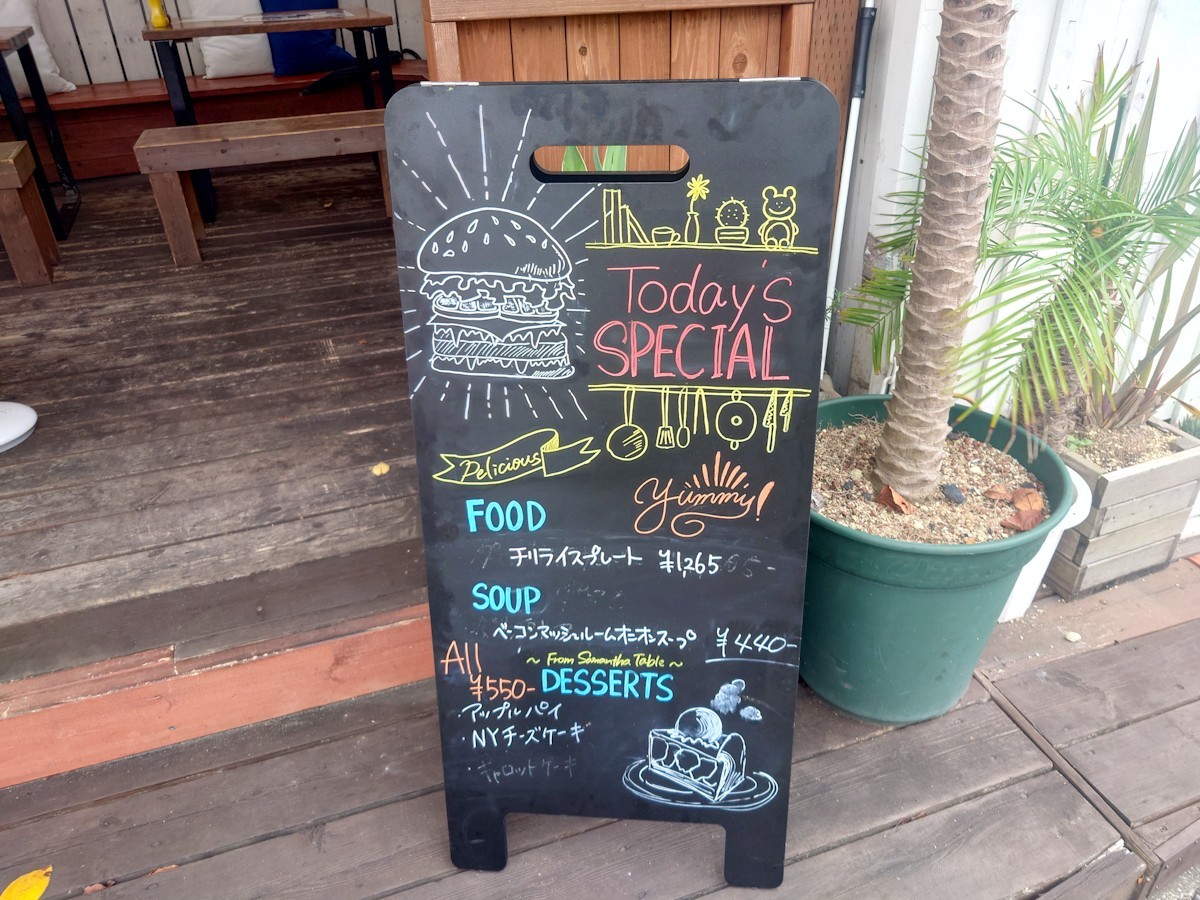 Today's
SPECIAL
Delicious
Yummy!
FOOD
チリライスプレート ¥1,265
SOUP
ベーコンマッシュルームオニオンスープ ¥440-
~ From Samantha Table ~
All
¥550-
DESSERTS
・アップルパイ
・NYチーズケーキ
・キャロットケーキ